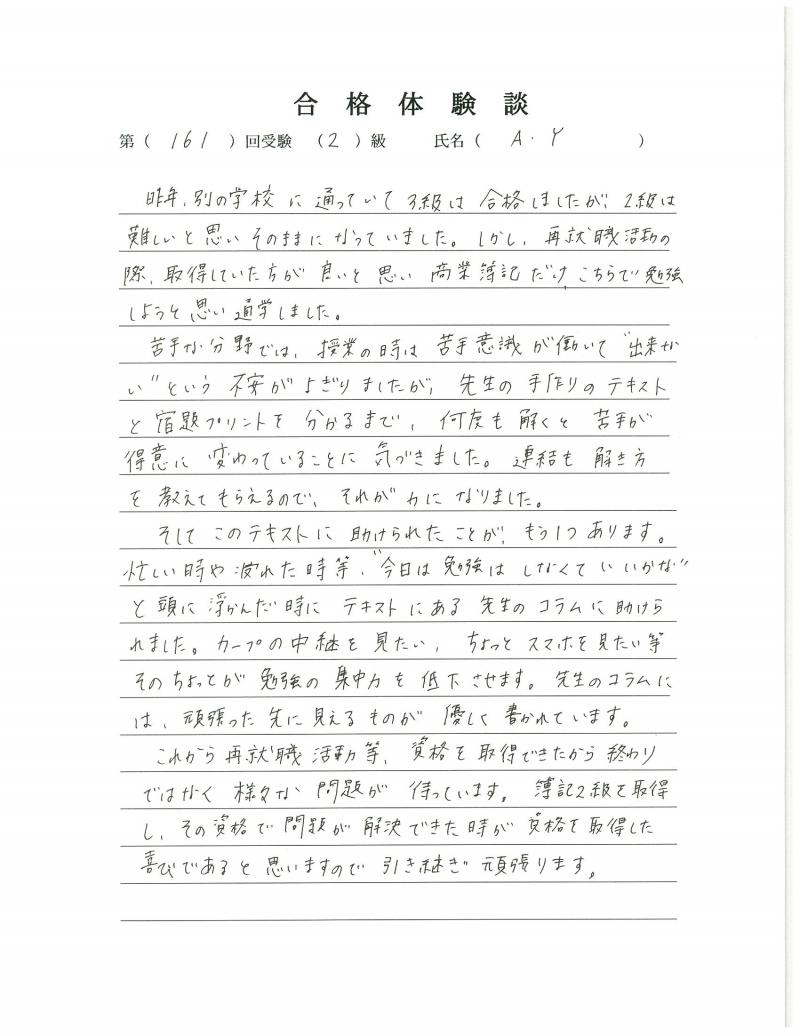 合格体験談
第（ 161 ）回受験 （2）級 氏名（ A.Y ）
昨年、別の学校に通っていて3級は合格しましたが、2級は
難しいと思いそのままになっていました。しかし、再就職活動の
際、取得していた方が良いと思い商業簿記だけ、こちらで勉強
しようと思い通学しました。
苦手な分野では、授業の時は苦手意識が働いて“出来な
い”という不安がよぎりましたが、先生の手作りのテキスト
と宿題プリントを分かるまで、何度も解くと苦手が
得意に変わっていることに気づきました。連結も解き方
を教えてもらえるので、それが力になりました。
そしてこのテキストに助けられたことが、もう1つあります。
忙しい時や疲れた時等、“今日は勉強はしなくていいかな”
と頭に浮かんだ時にテキストにある先生のコラムに助けら
れました。カープの中継を見たい、ちょっとスマホを見たい等
そのちょっとが勉強の集中力を低下させます。先生のコラムに
は、頑張った先に見えるものが優しく書かれています。
これから再就職活動等、資格を取得できたから終わり
ではなく様々な問題が待っています。簿記2級を取得
し、その資格で問題が解決できた時が資格を取得した
喜びであると思いますので引き継ぎ頑張ります。